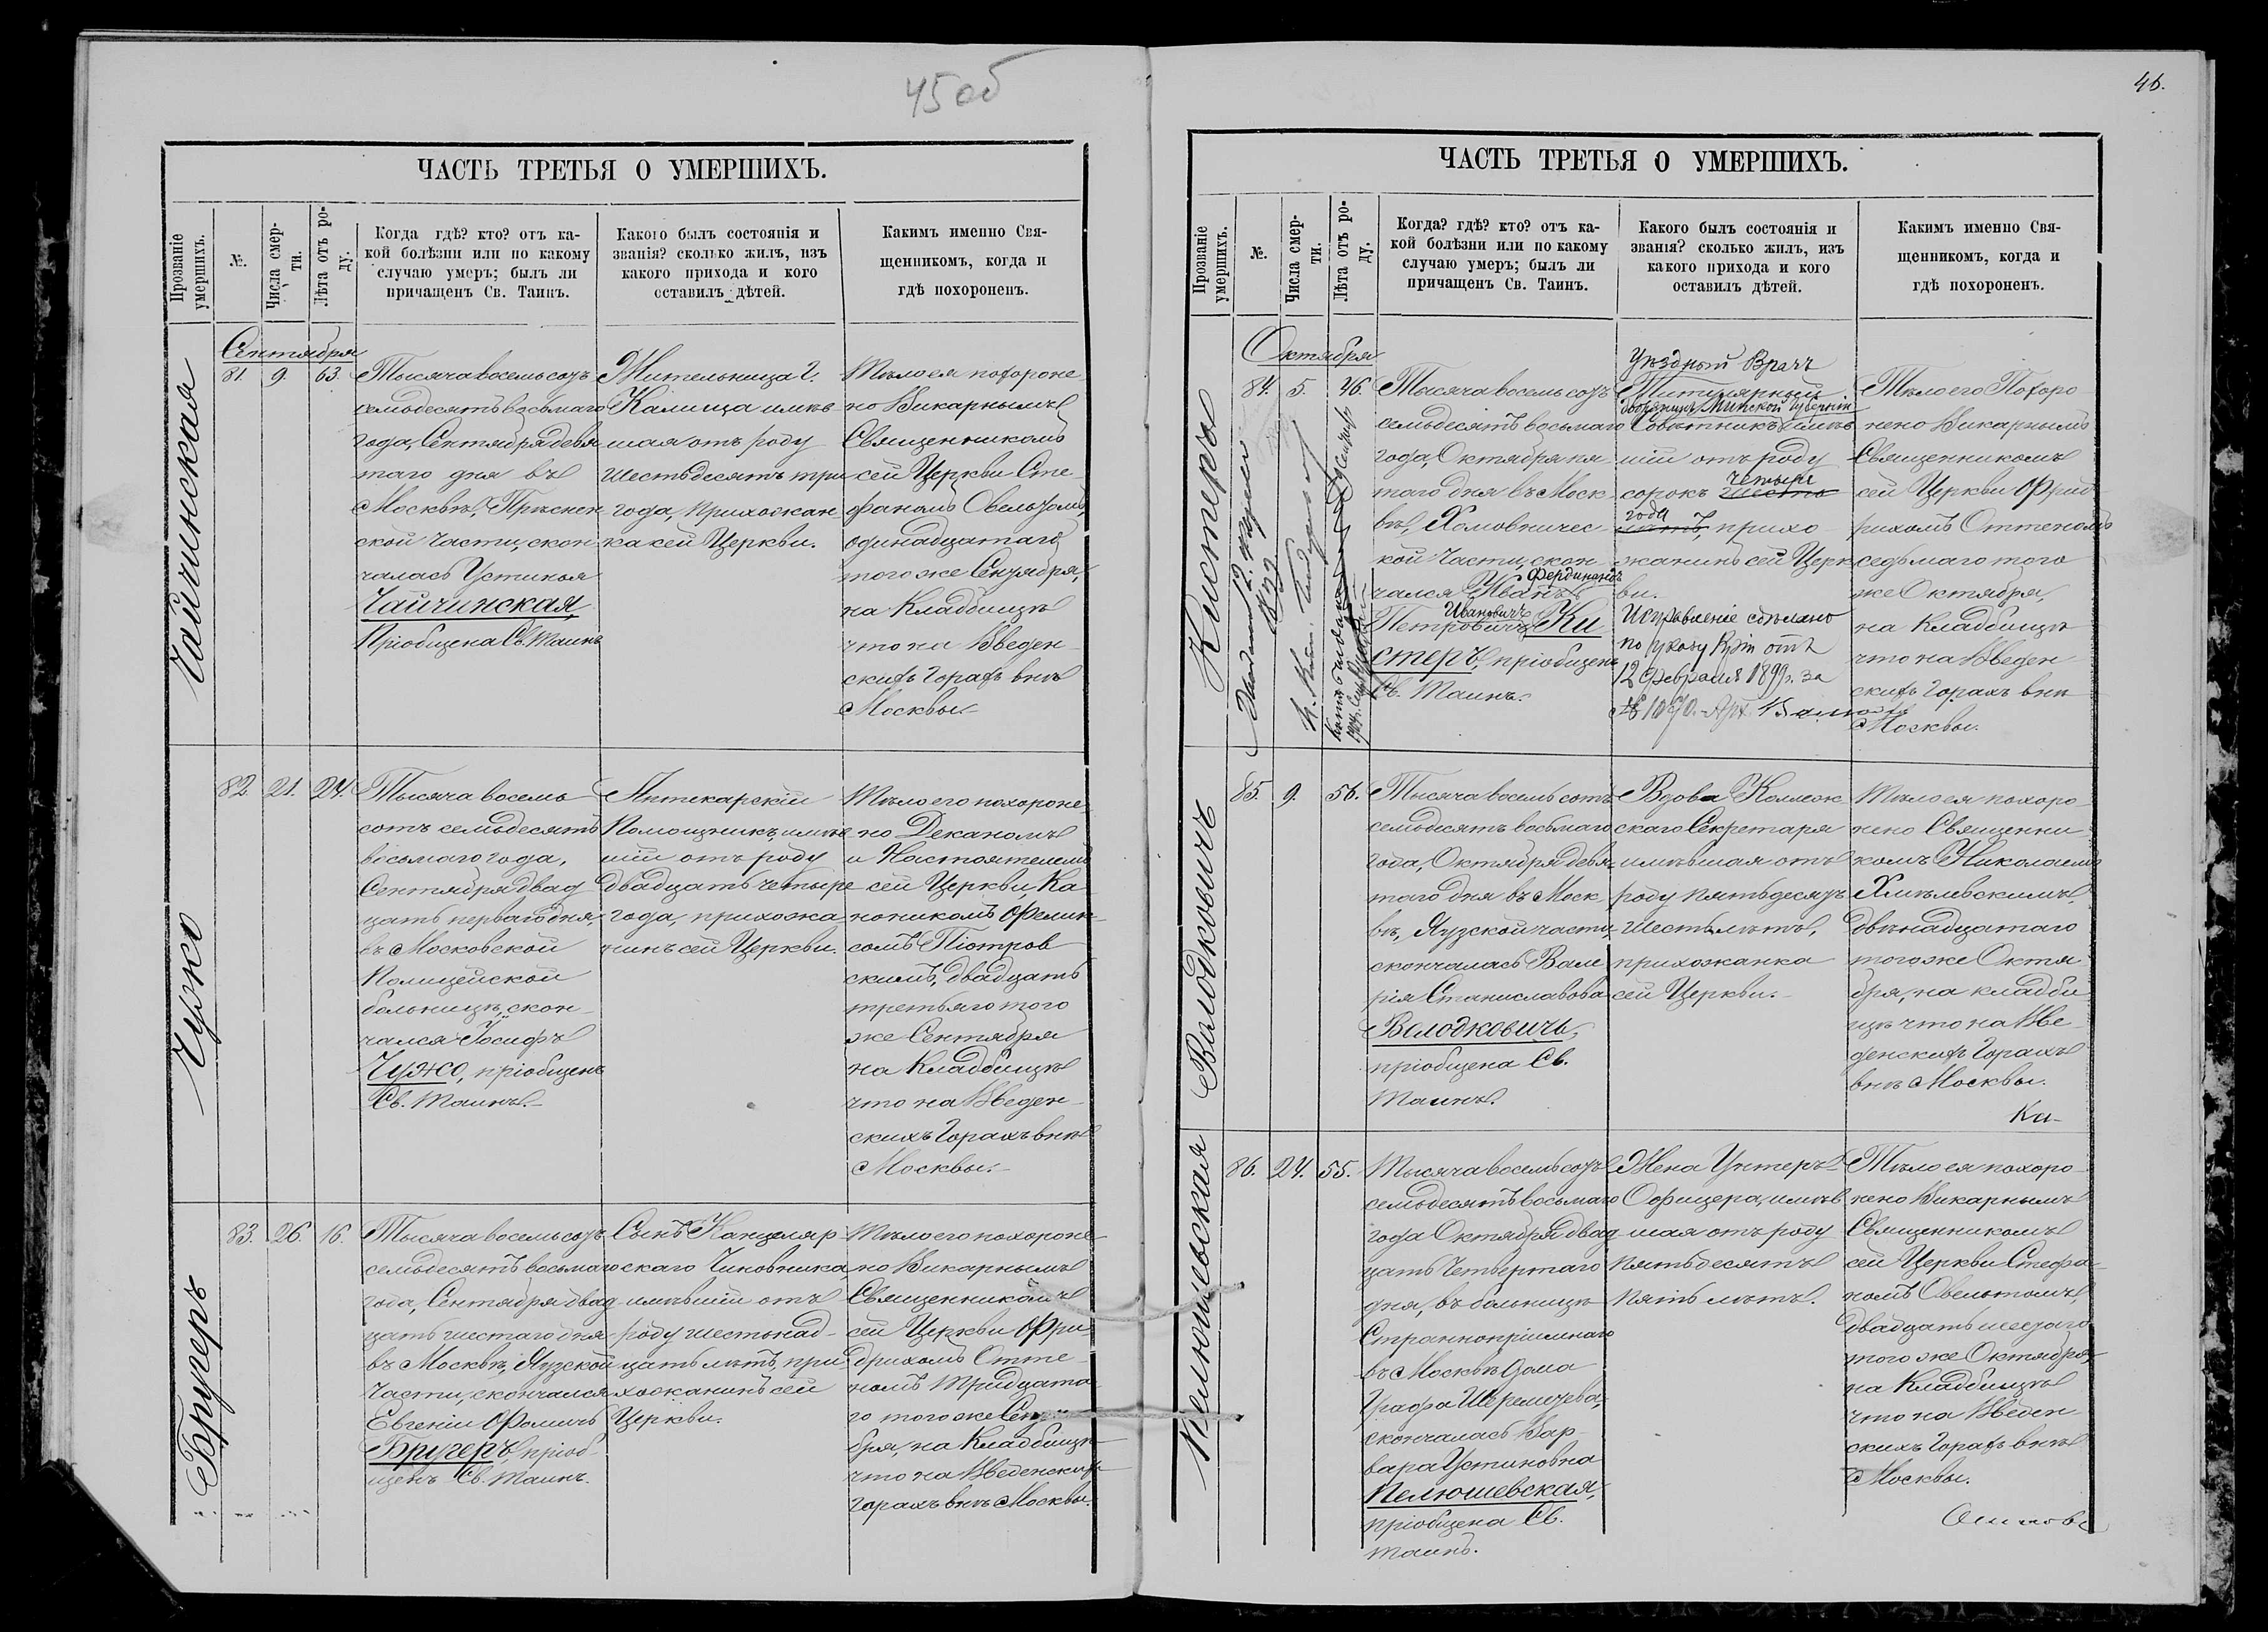 45 об
ЧАСТЬ ТРЕТЬЯ О УМЕРШИХЪ.
Прозваніе умершихъ.
№.
Числа смерти.
Лѣта отъ роду.
Когда гдѣ? кто? отъ ка-
кой болѣзни или по какому
случаю умеръ; былъ ли
причащенъ Св. Таинъ.
Какого былъ состоянія и
званія? сколько жилъ, изъ
какого прихода и кого
оставилъ дѣтей.
Какимъ именно Свя-
щенникомъ, когда и
гдѣ похороненъ.
Чайчинская
Сентября
81. 9. 63.
Тысяча восемьсотъ
семьдесятъ восьмаго
года, Сентября девя
таго дня въ
Москвѣ, Прѣснен-
ской Части, скон
чалась Устинья
Чайчинская,
Пріобщена Св. Таинъ
Жительница г.
Калиша имѣв-
шая отъ роду
шестьдесятъ три
года, прихожан-
ка сей Церкви.
Тѣло ея похороне
но Викарнымъ
Священникомъ
сей Церкви Сте-
фаномъ Овельтомъ,
одинадцатаго
того же Сентября,
на Кладбищѣ
что на Введен-
скихъ Горахъ внѣ
Москвы.
Чужо
82. 21. 24.
Тысяча восемь
сотъ семьдесятъ
восьмаго года,
Сентября двад
цать перваго дня,
въ Московской
Полицейской
больницѣ, скон-
чался Іосифъ
Чужо, пріобщенъ
Св. Таинъ.
Аптекарскій
Помощникъ, имѣв
шій отъ роду
двадцать четыре
года, прихожа
нинъ сей Церкви.
Тѣло его похороне
но Деканомъ
и Настоятелемъ
сей Церкви, Ка
ноникомъ Фелик-
сомъ Піотров
скимъ, двадцать
третьяго того
же Сентября
на Кладбищѣ
что на Введен-
скихъ Горахъ внѣ
Москвы.
Бругеръ
83. 26. 16.
Тысяча восемьсотъ
семьдесятъ восьмаго
года, Сентября двад
цать шестаго дня
въ Москвѣ, Яузской
Части, скончался
Евгеній Фомичъ
Бругеръ, пріоб-
щенъ Св. Таинъ.
Сынъ Канцеляр
скаго Чиновника,
имѣвшій отъ
роду шестьнад-
цать лѣтъ, при
хожанинъ сей
Церкви.
Тѣло его похороне
но Викарнымъ
Священникомъ
сей Церкви Фри-
дрихомъ Отте-
номъ тридцата
го того же Сентя
бря, на Кладбищѣ
что на Введенскихъ
Горахъ внѣ Москвы.
46.
ЧАСТЬ ТРЕТЬЯ О УМЕРШИХЪ.
Прозваніе умершихъ.
№.
Числа смерти.
Лѣта отъ роду.
Когда? гдѣ? кто? отъ ка-
кой болѣзни или по какому
случаю умеръ; былъ ли
причащенъ Св. Таинъ.
Какого былъ состоянія и
званія? сколько жилъ, изъ
какого прихода и кого
оставилъ дѣтей.
Какимъ именно Свя-
щенникомъ, когда и
гдѣ похороненъ.
Кистеръ
Октября
84. 5. 46.
Тысяча восемьсотъ
семьдесятъ восьмаго
года, Октября пя
таго дня въ Моск-
вѣ, Хамовничес-
кой Части, скон
Фердинандъ
чался Иванъ
Ивановичъ
Петровичъ Ки
стеръ, пріобщенъ
Св. Таинъ.
Уѣздный Врачъ
Титулярный
дворянинъ Минской Губерніи
Совѣтникъ имѣв
шій отъ роду
четыре
сорокъ шесть
года
лѣтъ, прихо
жанинъ сей Церк
ви.
Исправленіе сдѣлано
по указу отъ
12 Февраля 1899 г. за
№ 1090.
Тѣло его Похоро
нено Викарнымъ
Священникомъ
сей Церкви Фрид
рихомъ Оттеномъ
седьмаго того
же Октября,
на Кладбищѣ
что на Введен
скихъ Горахъ внѣ
Москвы.
Валодковичъ
85. 9. 56.
Тысяча восемь сотъ
семьдесятъ восьмаго
года, Октября девя
таго дня въ Моск
вѣ, Яузской части,
скончалась Вале
рія Станиславова
Валодковичъ,
пріобщена Св.
Таинъ.
Вдова Коллеж-
скаго Секретаря
имѣвшая отъ
роду пятьдесятъ
шесть лѣтъ,
прихожанка
сей Церкви.
Тѣло ея похоро
нено Священни
комъ Николаемъ
Хмѣлевскимъ,
двѣнадцатаго
того же Октя
бря, на кладби
щѣ что на Вве
денскихъ Горахъ
внѣ Москвы.
Ка-
Пелюшевская
86. 24. 55.
Тысяча восемьсотъ
семьдесятъ восьмаго
года Октября двад
цать Четвертаго
дня, въ больницѣ
Страннопріимнаго
въ Москвѣ дома
Графа Шереметева,
скончалась Вар-
вара Устиновна
Пелюшевская,
пріобщена Св.
Таинъ.
Жена Унтеръ-
Офицера, имѣв
шая отъ роду
пятьдесятъ
пять лѣтъ.
Тѣло ея похоро
нено Викарнымъ
Священникомъ
сей Церкви Стефа-
номъ Овельтомъ,
двадцать шестаго
того же Октября,
на Кладбищѣ
что на Введен-
скихъ Горахъ внѣ
Москвы.